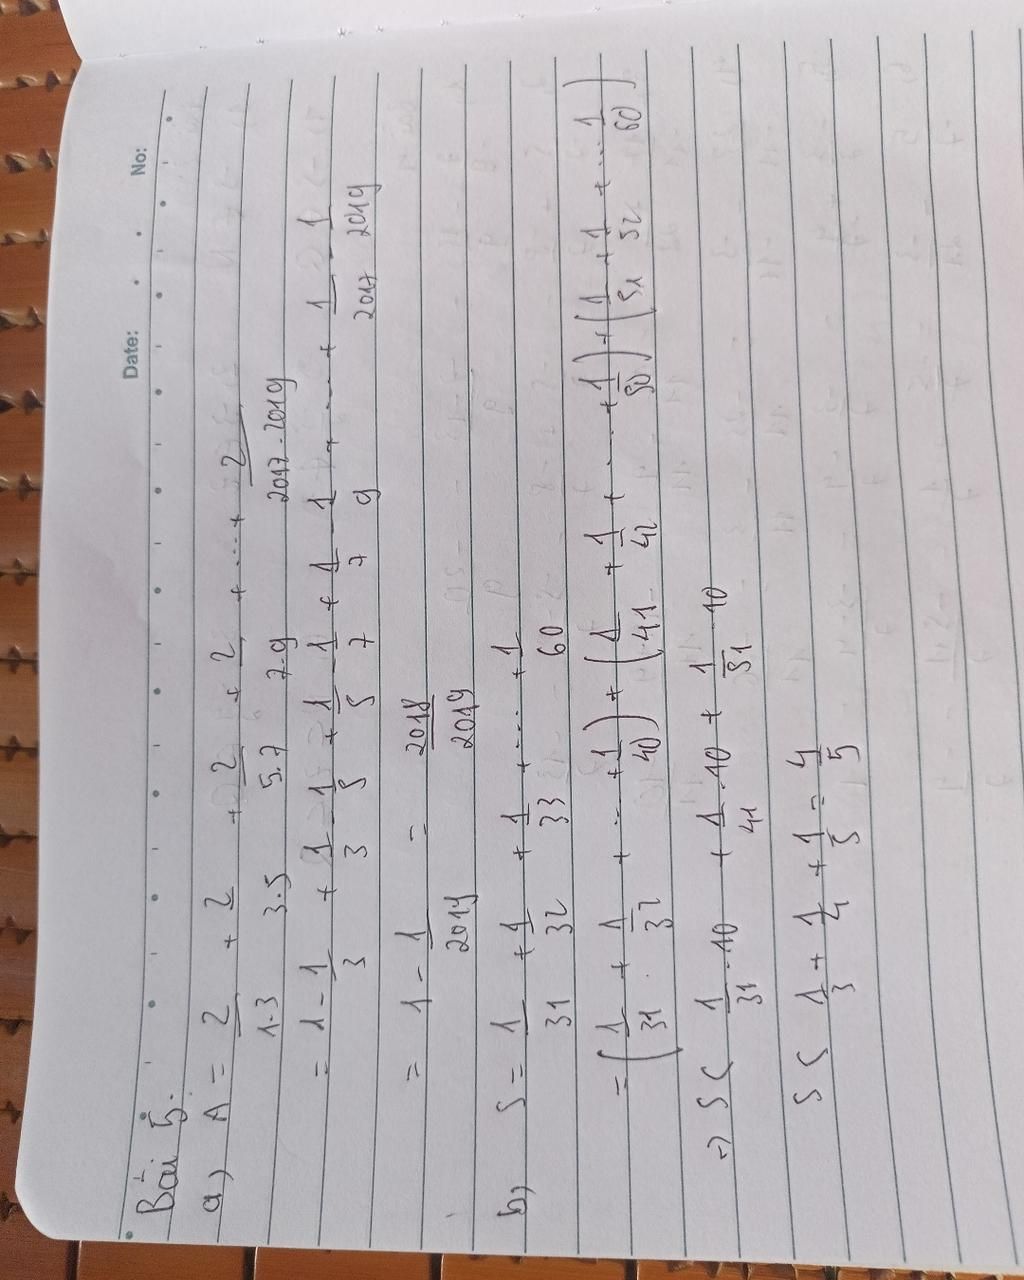 Date: No:
Bài 5.
a) A = 2/1.3 + 2/3.5 + 2/5.7 + 2/7.9 + .... + 2/2017.2019
= 1 - 1/3 + 1/3 - 1/5 + 1/5 - 1/7 + 1/7 - 1/9 + .... + 1/2017 - 1/2019
= 1 - 1/2019 = 2018/2019
b) S = 1/31 + 1/32 + 1/33 + .... + 1/60
= (1/31 + 1/32 + ... + 1/40) + (1/41 + 1/42 + .... + 1/50) + (1/51 + 1/52 + .... 1/60)
=> S < 1/31 .10 + 1/41 .10 + 1/51 .10
S < 1/3 + 1/4 + 1/5 = 4/5